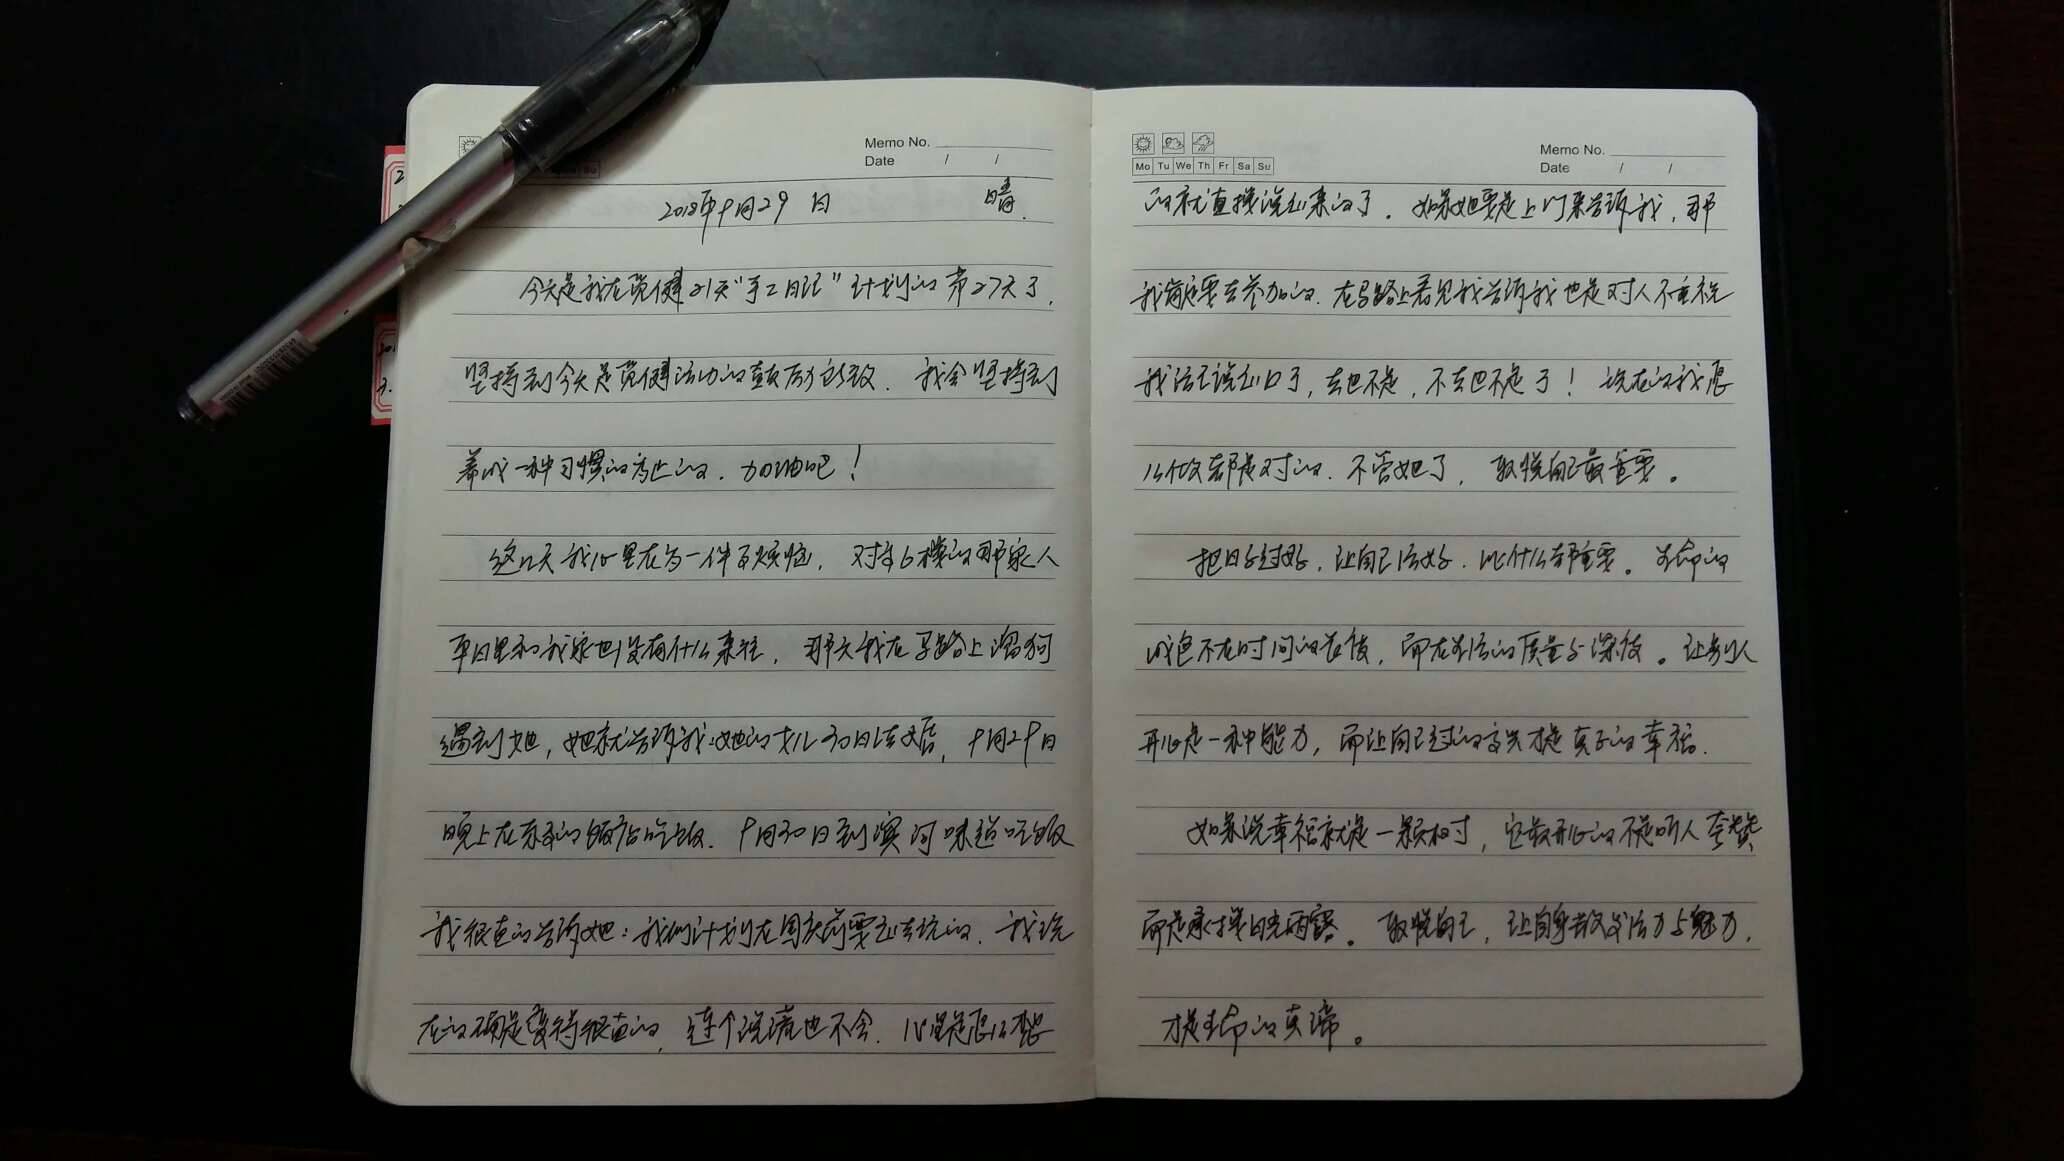 Memo No.
Date / /
2018年9月29日 晴.
今天是我在觉健21天“手工日记”计划的第27天了,
坚持到今天是觉健活动的鼓励所致. 我会坚持到
养成一种习惯为止的. 加油吧!
这几天我心里在为一件事烦恼, 对楼的那家人
平日里和我家也没有什么来往, 那天我在马路上溜狗
遇到她, 她就告诉我:她的女儿30日结婚, 9月29日
晚上在东的饭店吃饭. 9月30日到滨河味道吃饭
我很直的告诉她:我们计划在国庆前要出去玩的. 我现
在的确是变得很直的, 连个说谎也不会. 心里是怎么想
Memo No.
Mo Tu We Th Fr Sa Su
Date / /
的就直接说出来的了. 如果她要是上门来告诉我, 那
我肯定要去参加的. 在马路上看见我告诉我也是对人不重视
我话已说出口了, 去也不是, 不去也不是了! 现在的我怎
么做都是对的. 不管她了, 取悦自己最重要。
把日子过好, 让自己活好. 比什么都重要。生命的
成色不在时间的长度, 而在生活的质量与深度。让别人
开心是一种能力, 而让自己过的高兴才是真正的幸福.
如果说幸福就是一颗树, 它最开心的不是听人夸赞
而是承接阳光雨露。取悦自己, 让自身散发活力与魅力,
才是生命的真谛。